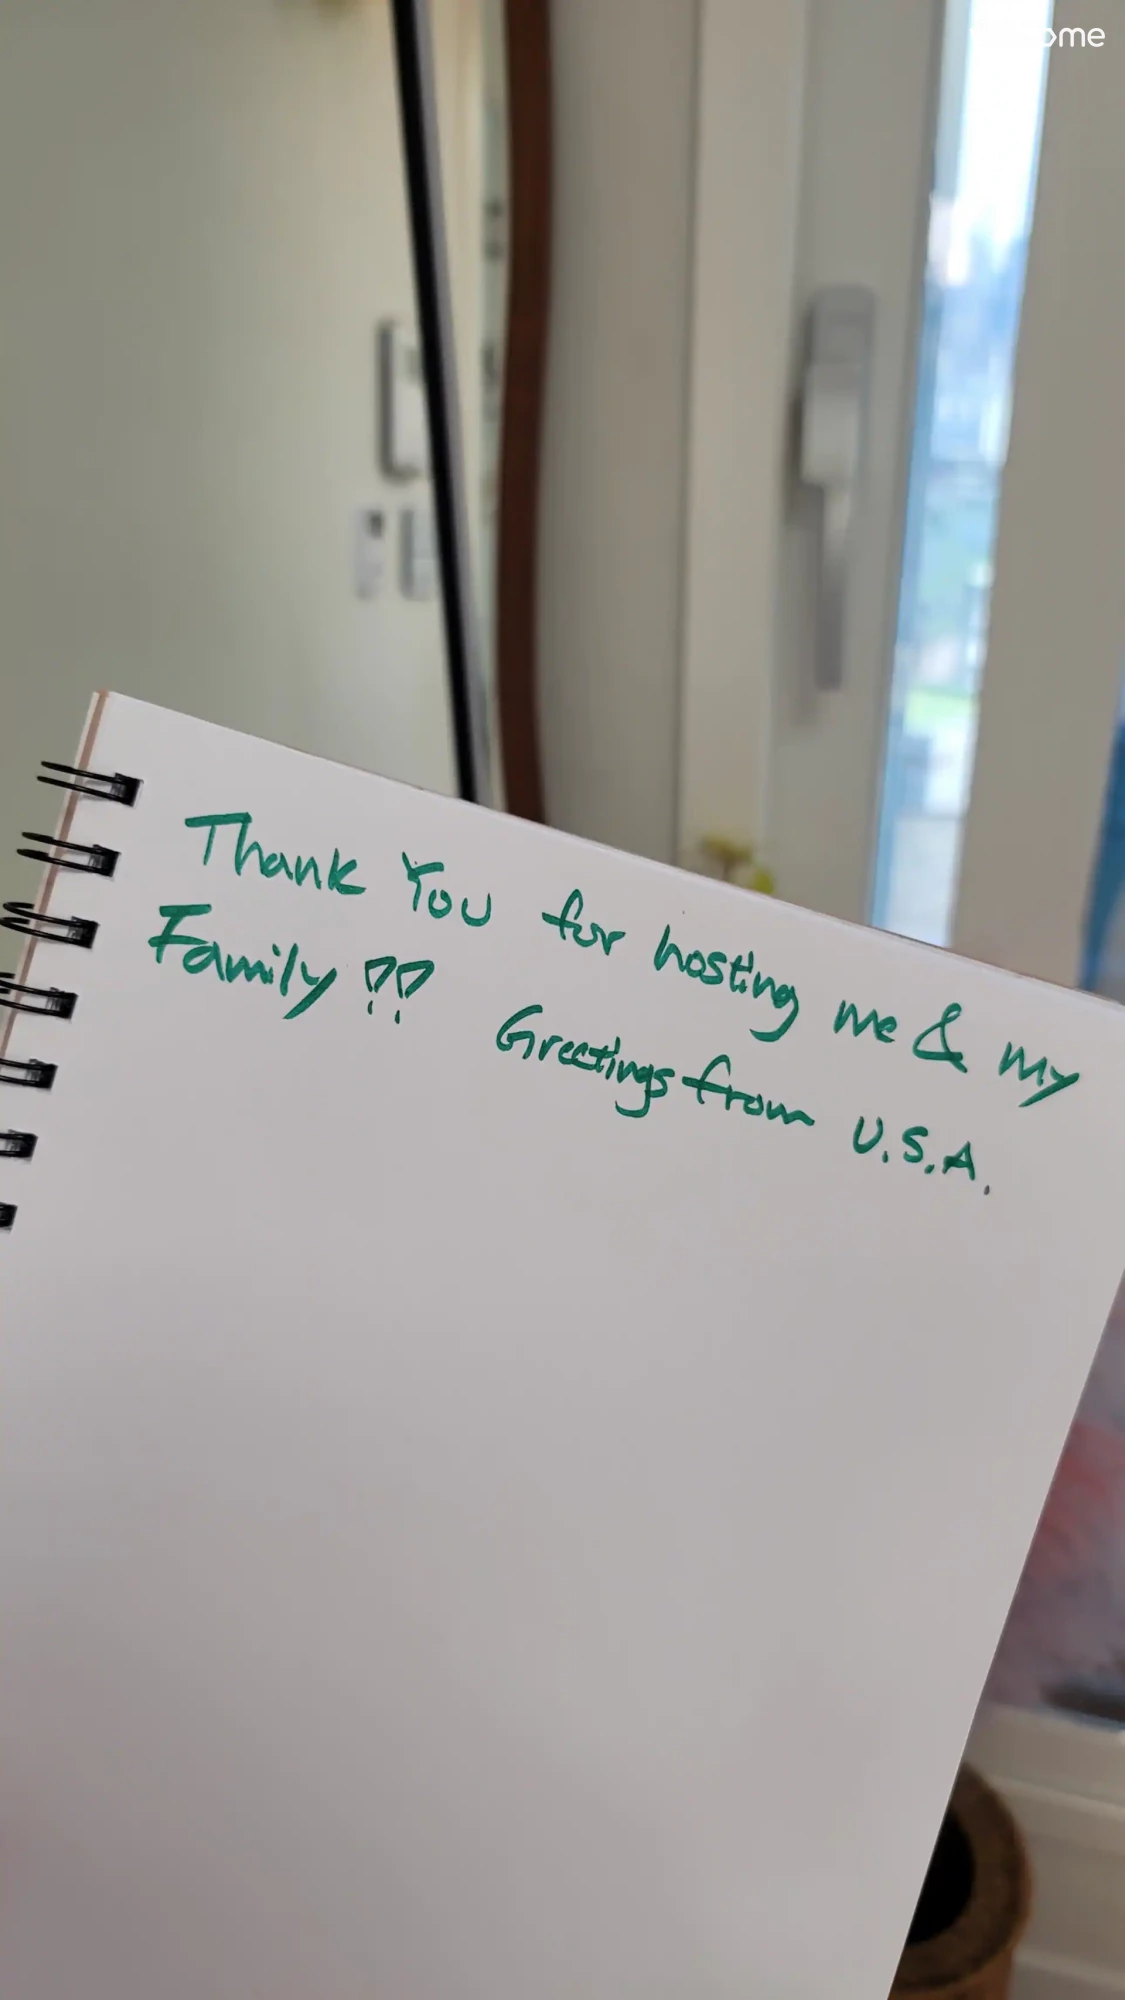 Thank You for hosting me & my
Family !! Greetings from U.S.A.